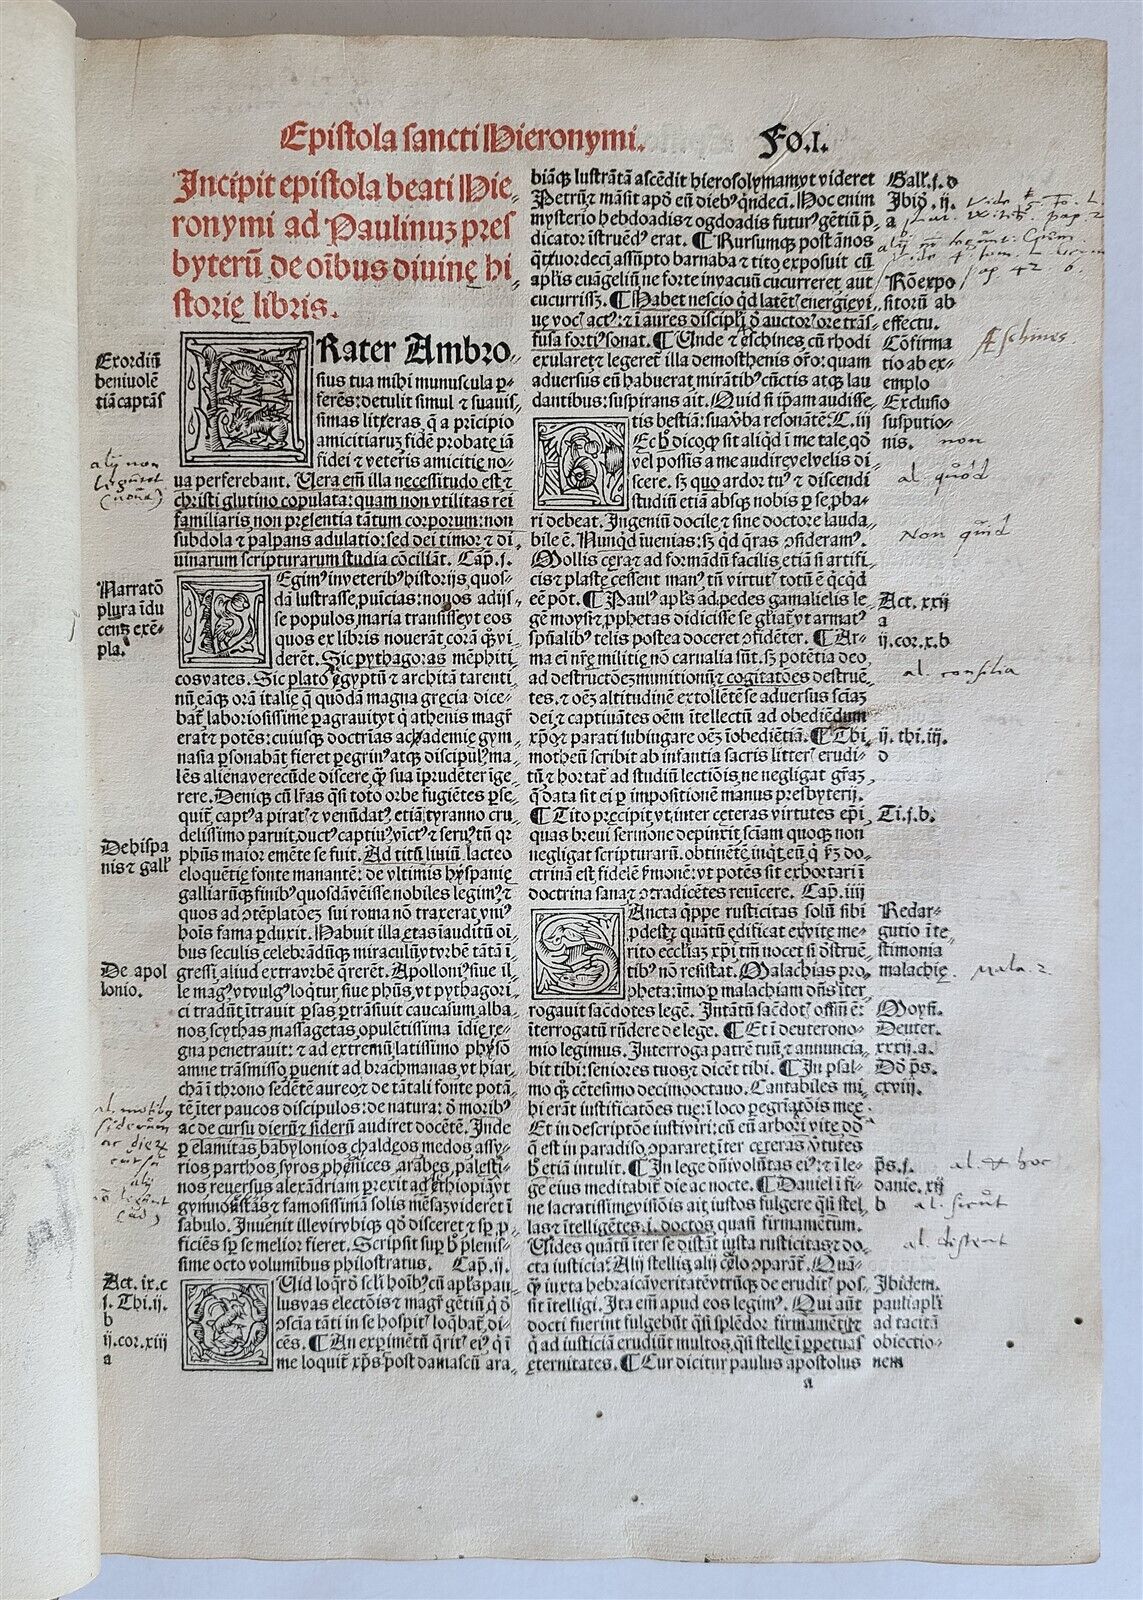 Epistola sancti Hieronymi. Fo.I.
Incipit epistola beati Hie-
ronymi ad Paulinuz pres
byterũ de oĩbus diuinę hi
storię libris.
Exordiũ
beniuolẽ
tiã captãs
FRater Ambro-
sius tua mihi munuscula ꝑ-
ferẽs: detulit simul ⁊ suauis-
simas litteras, q̃ a pricipio
amicitiaruz fidẽ probatę iã
fidei ⁊ veteris amicitię no-
ua perferebant. Uera em̃ illa necessitudo est ⁊
christi glutino copulata: quam non vtilitas rei
familiaris, non presentia tãtum corporum: non
subdola ⁊ palpans adulatio: sed dei timor ⁊ di-
uinarum scripturarum studia cõciliãt. Cap. i.
Narratõ
plura idu
cens exẽ-
pla.
LEgimꝰ in veteribꝰ historijs, quos-
dã lustrasse puicias: nouos adijs-
se populos, maria transisse, vt eos
quos ex libris nouerãt, corã q̃ vi-
derẽt. Sic pythagoras mẽphiti
cos vates. Sic plato ęgyptũ ⁊ architã tarenti
nũ, eãq̃ orã italię, q̃ quõdã magna gręcia dice-
bat̃, laboriosissime ꝑagrauit: vt q̃ athenis magr̃
erat ⁊ potẽs: cuiusq̃ doctrias achademię gym-
nasia ꝑsonabãt, fieret peregrinꝰ atq̃ discipulꝰ, ma-
lẽs aliena verecũde discere, q̃ꝫ sua ĩprudẽter ĩge
rere. Deniq̃ cũ lr̃as q̃si toto orbe fugiẽtes ꝑse-
quit̃, captꝰ a piratꝭ ⁊ venũdatꝰ, etiã tyranno cru-
delissimo paruit, ductꝰ captiuꝰ, vĩctꝰ ⁊ seruꝰ: tñ qꝛ
phũs maior emẽte se fuit. Ad titũ liuiũ, lacteo
Dehispa
nis ⁊ gall
eloquẽtię fonte manantẽ: de vltimis hyspanię
galliarũq̃ finibꝰ quosdã venisse nobiles legimꝰ, ⁊
quos ad ↄtẽplatõez sui roma nõ traxerat, vniꝰ
hoĩs fama ꝑduxit. Habuit illa ętas inauditũ oĩ-
bus seculis celebrãdũq̃ miraculũ, vt vrbẽ tãtã i-
De apol
lonio.
gressi, aliud extra vrbẽ q̃rerẽt. Apolloniꝰ siue il-
le magꝰ, vt vulgꝰ loq̃tur, siue phũs, vt pythagori-
ci tradũt, ĩtrauit ꝑsas, ꝑtrãsiuit caucasum, alba-
nos, scythas, massagetas, opulẽtissima ĩdię re-
gna penetrauit: ⁊ ad extremũ, latissimo physõ
amne trãsmisso, ꝑuenit ad brachmanas, vt hiar-
chã i throno sedẽtẽ aureo, ⁊ de tãtali fonte potã-
tẽ, iter paucos discipulos: de natura: ð moribꝰ
ac de cursu dierũ ⁊ siderũ audiret docẽtẽ. Inde
ꝑ elamitas, babylonios, chaldeos, medos, assy-
rios, parthos, syros, phęnices, arabes, palesti-
nos, reuersus alexãdriam ꝑrexit ad ęthiopiã, vt
gymnosophistas ⁊ famosissimã solis mẽsaz videret i
sabulo. Inuenit ille vir vbiq̃ qð disceret, ⁊ sp̃ ꝓ-
ficiẽs, sp̃ se melior fieret. Scripsit suꝑ h̃ plenis-
sime octo volumibus philostratus. Cap. ij.
Act. ix. c
j. Thi. ij.
b
ij. cor. xiij
a
QUid loq̃r ð scl̃i hoĩbꝰ, cũ apl̃s pau-
lus vas electõis ⁊ magr̃ gẽtiũ, q̃ ð
ↄscia tãti in se hospitꝭ loq̃bat̃, di-
cẽs. ¶ An exꝑimẽtũ q̃ritꝭ eiꝰ q̃ i
me loquit̃ xp̃s, post damascũ ara-
biãq̃ lustratã ascẽdit hierosolymam, vt videret
Petrũ, ⁊ mãsit apð eũ diebꝰ q̃ndeci. Hoc enim
mysterio hebdoadis ⁊ ogdoadis, futurꝰ gẽtiũ p̃-
dicator ĩstruẽdꝰ erat. ¶ Rursumq̃ post ãnos
q̃ttuordeci assũpto barnaba ⁊ tito, exposuit cũ
apl̃is euãgeliũ, ne forte in vacuũ cucurreret, aut
cucurrissꝫ. ¶ Habet nescio q̃d latẽt̃ energię vi-
uę vocꝭ actꝰ: ⁊ i aures discipl̃i ð auctorꝭ ore trãs-
fusa fortiꝰ sonat. ¶ Unde ⁊ ęschines, cũ rhodi
exularet, ⁊ legeret̃ illa demosthenis or̃o: quam
aduersus eũ habuerat, mirãtibꝰ cũctis atq̃ lau
dantibus: suspirans ait. Quid si ip̃am audisse-
tis bestiã: sua v̾ba resonãtẽ: C. iij
NEc h̃ dico, q̃ sit aliq̃d i me tale, qð
vel possis a me audire, vel velis di-
scere. sꝫ quo ardor tuꝰ ⁊ discendi
studiũ etiã absq̃ nobis ꝑ se ꝓba-
ri debeat. Ingeniũ docile ⁊ sine doctore lauda-
bile ẽ. Nunq̃d ĩuenias: sꝫ q̃d q̃ras ↄsideramꝰ.
Mollis cęra ⁊ ad formãdũ facilis, etiã si artifi-
cis ⁊ plastę cessent manꝰ, tñ virtutꝭ totũ ẽ q̃cq̃d
eẽ põt. ¶ Paulꝰ apl̃s ad pedes gamalielis le-
gẽ moysi ⁊ ꝓphetas didicisse se gl̃iat̃, vt armatꝰ
sp̃ualibꝰ telis, postea doceret ↄfidẽter. ¶ Ar-
ma em̃ nr̃ę militię nõ carnalia sũt, sꝫ potẽtia deo,
ad destructõez munitionũ, ⁊ cogitatões destruẽ-
tes, ⁊ oẽz altitudinẽ extollẽtẽ se aduersus sciãz
dei, ⁊ captiuãtes oẽm ĩtellectũ ad obediẽdum
xp̃o, ⁊ parati subiugare oẽz ĩobediẽtiã. ¶ Thi-
motheũ scribit ab infantia sacris litterꝭ erudi-
tũ, ⁊ hortat̃ ad studiũ lectiõis, ne negligat gr̃az,
q̃ data sit ei ꝑ impositionẽ manus presbyterij.
¶ Tito pręcipit, vt inter ceteras virtutes ep̃i,
quas breui sermone depinxit, sciam quoq̃ non
negligat scripturarũ. obtinẽtẽ, inq̃t, eũ, q̃ ẜm do-
ctrinã est fidele ẜmonẽ: vt potẽs sit exhortari i
doctrina sana, ⁊ ↄtradicẽtes reuĩcere. Cap. iiij
SAncta q̃ppe rusticitas solũ sibi
ꝓdest, ⁊ quãtũ ędificat ex vitę me-
rito eccl̃iaz xp̃i, tm̃ nocet si ðstruẽ-
tibꝰ nõ resistat. Malachias pro-
pheta: imo ꝑ malachiam dñs iter-
rogauit sacdotes legẽ. Intãtũ sacdotꝭ offm̃ ẽ:
ĩterrogatũ rñdere de lege. ¶ Et i deuterono-
mio legimus. Interroga patrẽ tuũ, ⁊ annuncia-
bit tibi: seniores tuos, ⁊ dicẽt tibi. ¶ In psal-
mo q̃ cẽtesimo decimooctauo. Cantabiles mi-
hi erãt iustificatões tuę: i loco peregriatõis meę.
Et in descriptõe iusti viri: cũ eũ arbori vitę dð
q̃ est in paradiso ↄpararet, iter ceteras v̾tutes
h̃ etiã intulit. ¶ In lege dñi volũtas eiꝰ: ⁊ i le-
ge eius meditabit̃ die ac nocte. ¶ Daniel i fi-
ne sacratissimę visiõis ait, iustos fulgere q̃si stel
las: ⁊ ĩtelligẽtes. i. doctos, quasi firmamẽtum.
Uides quãtũ iter se distãt iusta rusticitas ⁊ do-
cta iusticia: Alij stellis, alij cęlo ↄparãt̃. Quã-
q̃ꝫ iuxta hebraicã veritatẽ vtrũq̃ de eruditꝭ pos-
sit ĩtelligi. Ita em̃ apud eos legimꝰ. Qui aũt
docti fuerint fulgebũt q̃si splẽdor firmamẽti: ⁊
q̃ ad iusticiã erudiũt multos, q̃si stellę i ꝑpetuas
ęternitates. ¶ Cur dicitur paulus apostolus
Gall. j. d
Ibið. ij.
a
Rõ expo
sitorũ ab
effectu.
Cõfirma
tio ab ex-
emplo
Exclusio
susputio-
nis.
Act. xxij
a
ij. cor. x. b
ij. thi. iij.
d
Ti. j. b.
Redar-
gutio i te-
stimonia
malachię.
Moysi.
Deuter.
xxxij. a.
Dõ ps.
cxviij.
ps. j.
danie. xij
b
Ibidem.
pauli apl̃i
ad tacitã
obiectio-
nem
a
Æschines.
non
al. quod
Non quid
al. consilia
Mala. 2.
al. & hoc
al. sicut
al. distent
alij non
legunt
(noua)
al. motibꝰ
siderum
ac dierũ
cursu
alij